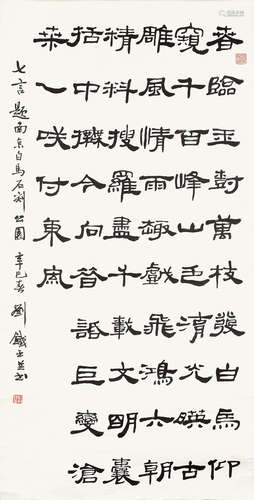 春臨玉樹萬枝發白馬仰
窺千百峰山色清光映古
雕風情雨趣戲飛鴻六朝
精粹搜羅盡千載文明囊
括中撫今向昔話巨變滄
桑一咲付東風
七言題南京白馬石刻公園 辛巳春 劉鐵平並書